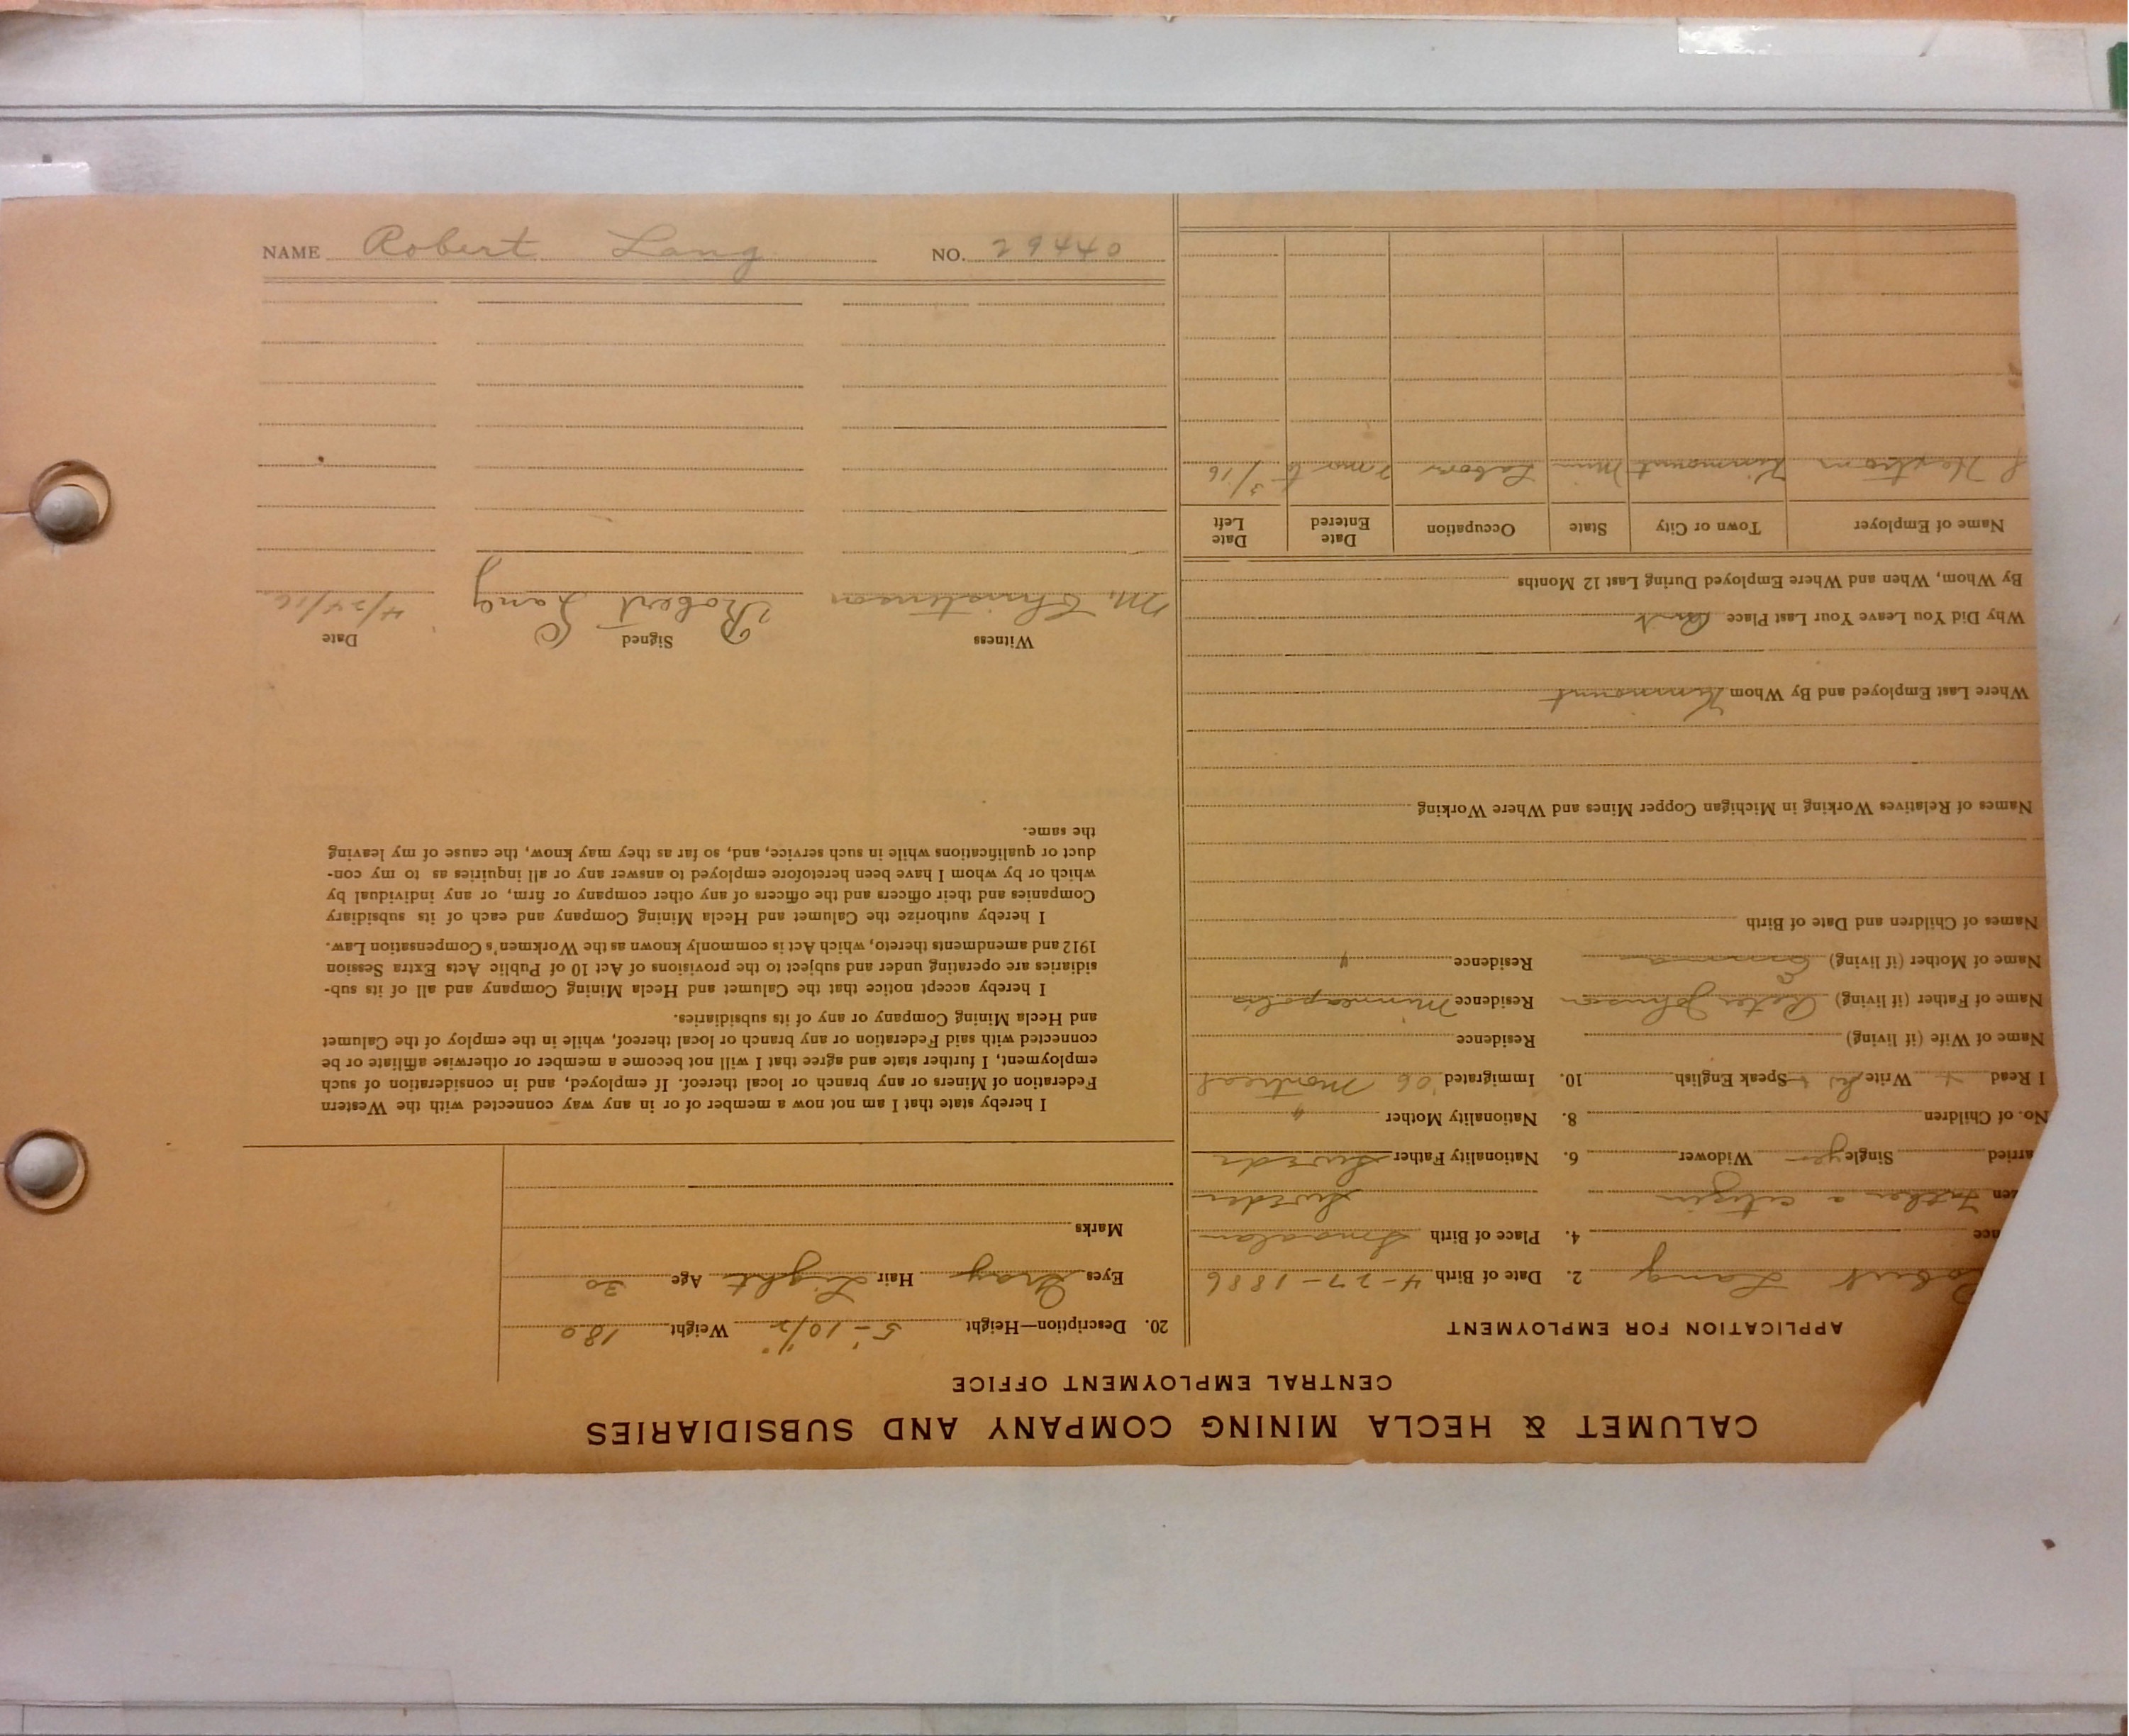 CALUMET & HECLA MINING COMPANY AND SUBSIDIARIES
CENTRAL EMPLOYMENT OFFICE
APPLICATION FOR EMPLOYMENT
obert Lang 2. Date of Birth 4-27-1886
ace 4. Place of Birth Smaalan
zen Father a citizen Sweden
arried Single yes Widower 6. Nationality Father Swede
No. of Children 8. Nationality Mother "
I Read + Write Speak English 10. Immigrated '06 Montreal
Name of Wife (if living) Residence
Name of Father (if living) Peter Johnson Residence Minneapolis
Name of Mother (if living) Emma Residence "
Names of Children and Date of Birth
Names of Relatives Working in Michigan Copper Mines and Where Working
Where Last Employed and By Whom Kinmount
Why Did You Leave Your Last Place Quit
By Whom, When and Where Employed During Last 12 Months
Name of Employer Town or City State Occupation Date Entered Date Left
Kinmount Minn Labor 3/16
20. Description—Height 5'-10½" Weight 180
Eyes Gray Hair Light Age 30
Marks
I hereby state that I am not now a member of or in any way connected with the Western
Federation of Miners or any branch or local thereof. If employed, and in consideration of such
employment, I further state and agree that I will not become a member or otherwise affiliate or be
connected with said Federation or any branch or local thereof, while in the employ of the Calumet
and Hecla Mining Company or any of its subsidiaries.
I hereby accept notice that the Calumet and Hecla Mining Company and all of its sub-
sidiaries are operating under and subject to the provisions of Act 10 of Public Acts Extra Session
1912 and amendments thereto, which Act is commonly known as the Workmen's Compensation Law.
I hereby authorize the Calumet and Hecla Mining Company and each of its subsidiary
Companies and their officers and the officers of any other company or firm, or any individual by
which or by whom I have been heretofore employed to answer any or all inquiries as to my con-
duct or qualifications while in such service, and, so far as they may know, the cause of my leaving
the same.
Witness Signed Date
M. Christenson Robert Lang 4/24/16
NAME Robert Lang NO. 29440